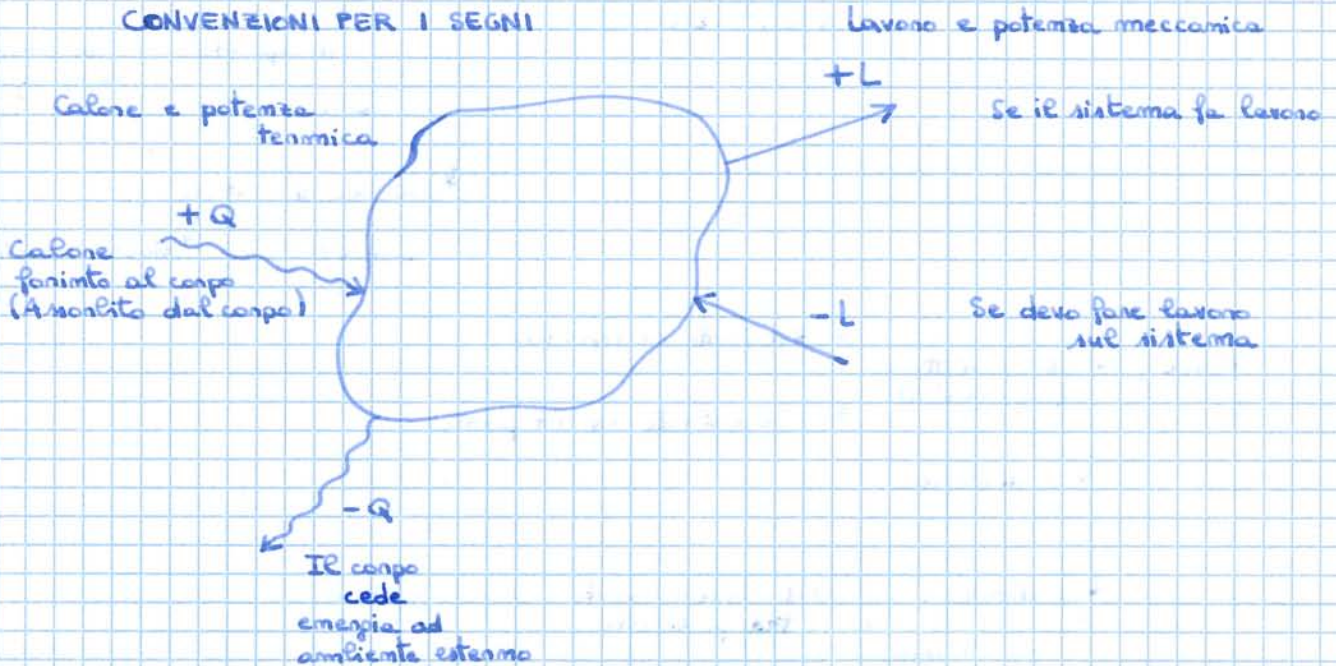 CONVENZIONI PER I SEGNI
Lavoro e potenza meccanica
Calore e potenza
termica
+L
Se il sistema fa lavoro
+Q
Calore
fornito al corpo
(Assorbito dal corpo)
-L
Se devo fare lavoro
sul sistema
-Q
Il corpo
cede
energia ad
ambiente esterno